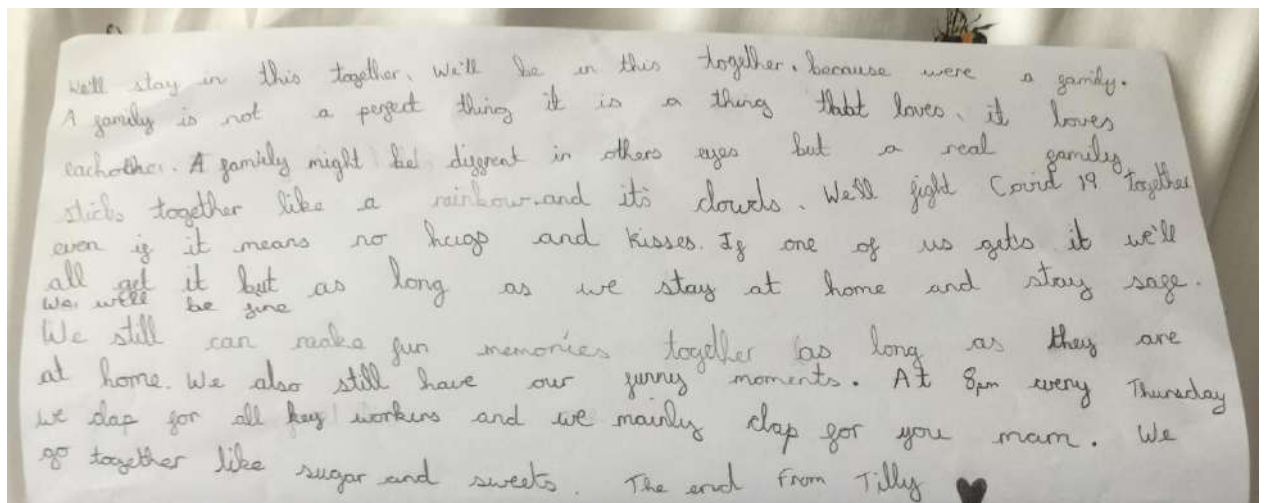 We'll stay in this together, We'll be in this together. because were a family.
A family is not a perfect thing it is a thing thabt loves, it loves
eachother. A famiely might be diffrent in others eyes but a real family
sticks together like a rainbow and it's clouds. We'll fight Covid 19 together
even if it means no hugs and kisses. If one of us gets it we'll
all get it but as long as we stay at home and stay safe.
We, we'll be fine
We still can make fun memories together as long as they are
at home. We also still have our funny moments. At 8pm every Thursday
we clap for all key workers and we mainly clap for you mam. We
go together like sugar and sweets. The end From Tilly ♥